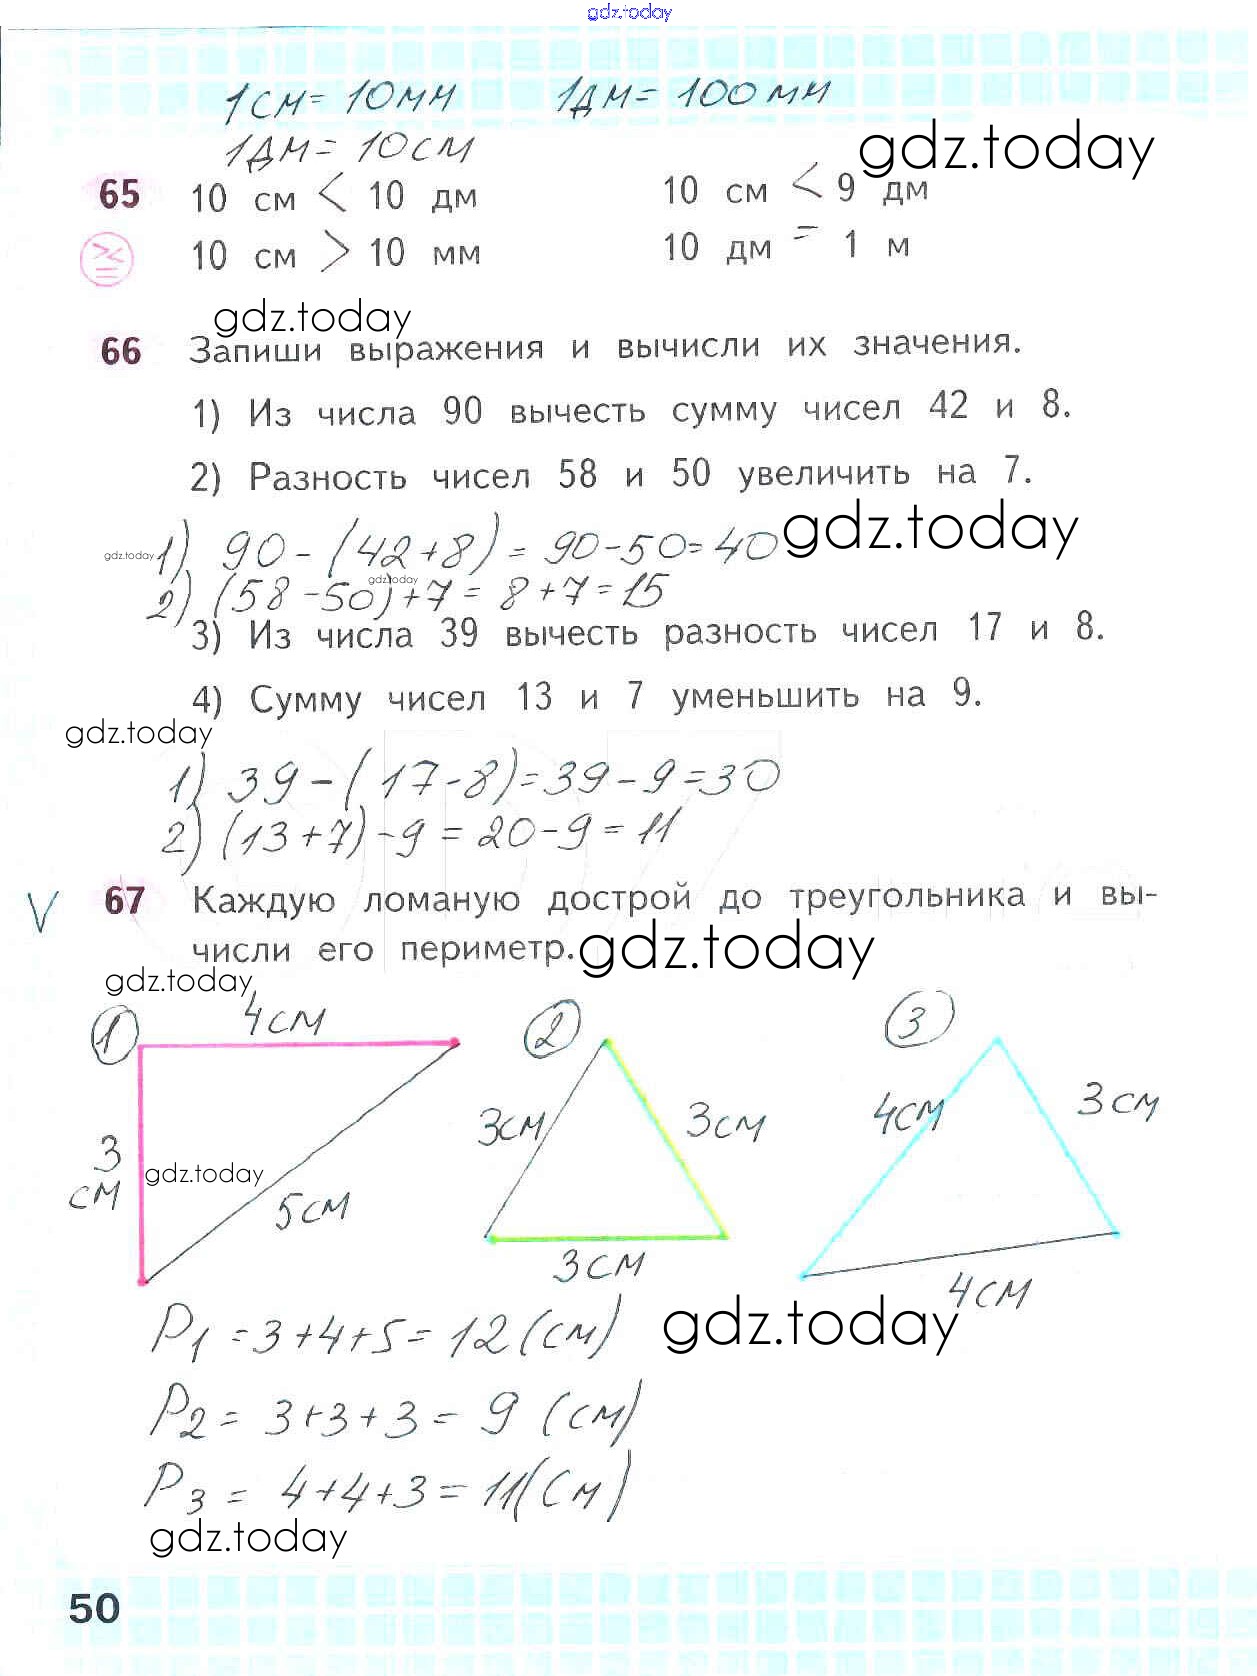 gdz.today
1см = 10мм 1дм = 100мм
1дм = 10см
gdz.today
65 10 см < 10 дм 10 см < 9 дм
10 см > 10 мм 10 дм = 1 м
gdz.today
66 Запиши выражения и вычисли их значения.
1) Из числа 90 вычесть сумму чисел 42 и 8.
2) Разность чисел 58 и 50 увеличить на 7.
gdz.today
gdz.today 1) 90 - (42 + 8) = 90 - 50 = 40
gdz.today
2) (58 - 50) + 7 = 8 + 7 = 15
3) Из числа 39 вычесть разность чисел 17 и 8.
4) Сумму чисел 13 и 7 уменьшить на 9.
gdz.today
1) 39 - (17 - 8) = 39 - 9 = 30
2) (13 + 7) - 9 = 20 - 9 = 11
V 67 Каждую ломаную дострой до треугольника и вы-
числи его периметр. gdz.today
gdz.today
1 4см 2 3
3 см gdz.today 5см
3см 3см 3см
4см 3см 4см
P1 = 3 + 4 + 5 = 12 (см) gdz.today
P2 = 3 + 3 + 3 = 9 (см)
P3 = 4 + 4 + 3 = 11 (см)
gdz.today
50